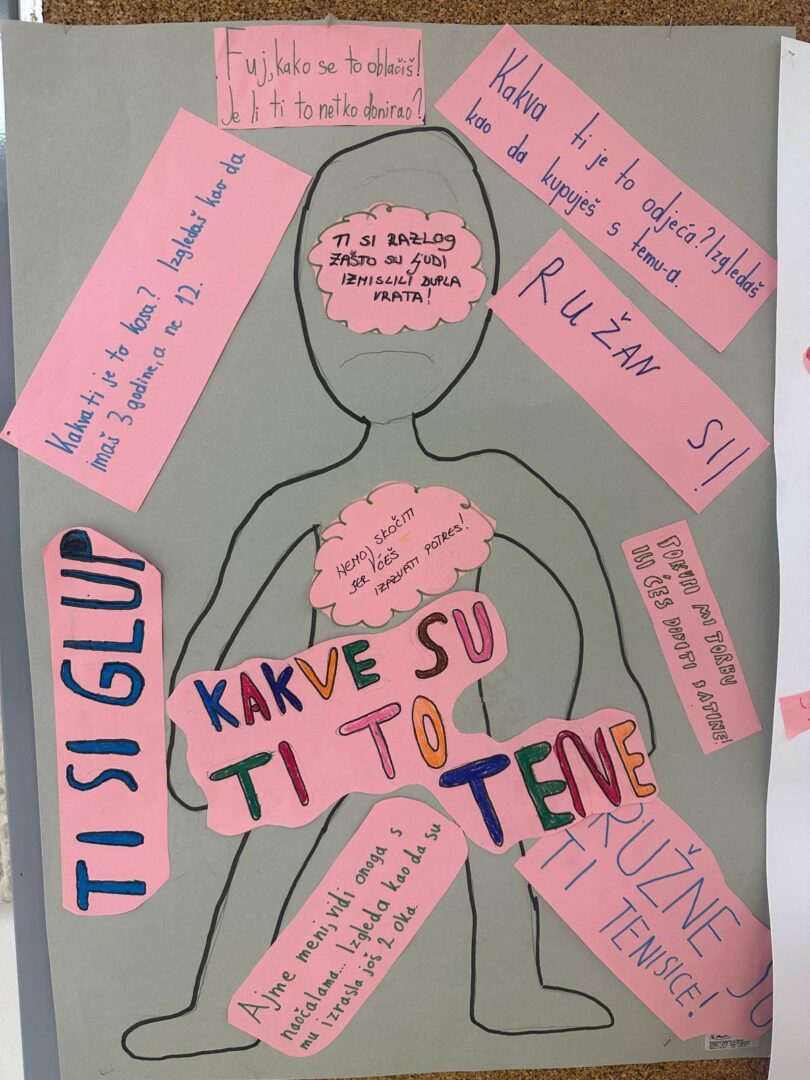 Fuj, kako se to oblačiš!
Je li ti to netko donirao?
Kakva ti je to odjeća? Izgledaš
kao da kupuješ s temu-a.
Kakva ti je to kosa? Izgledaš kao da
imaš 3 godine, a ne 12.
TI SI RAZLOG
ZAŠTO SU LJUDI
IZMISLILI DUPLA
VRATA!
RUŽAN SI!
NEMOJ SKOČITI
JER ĆEŠ
IZAZVATI POTRES!
TI SI GLUP
MI TORBU
ILI ĆEŠ DOBITI BATINE!
KAKVE SU
TI TO
TENE
RUŽNE SU
TI TENISICE!
Ajme meni, vidi onoga s
naočalama... Izgleda kao da su
mu izrasla još 2 oka.